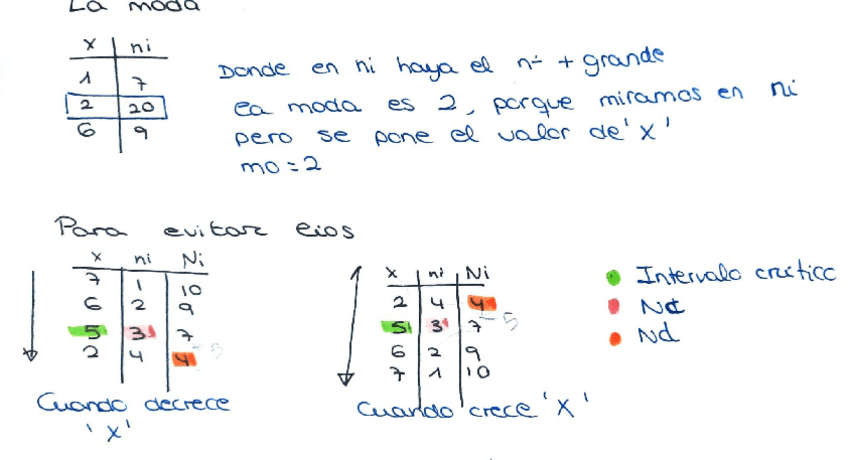 La moda
x ni
1 7
2 20
6 9
Donde en ni haya el nº + grande
la moda es 2, porque miramos en ni
pero se pone el valor de 'x'
mo = 2
Para evitar lios
x ni Ni
7 1 10
6 2 9
5 3 7
2 4 4
Cuando decrece
'x'
x ni Ni
2 4 4
5 3 7
6 2 9
7 1 10
Cuando crece 'x'
Intervalo crítico
Nc
Nd